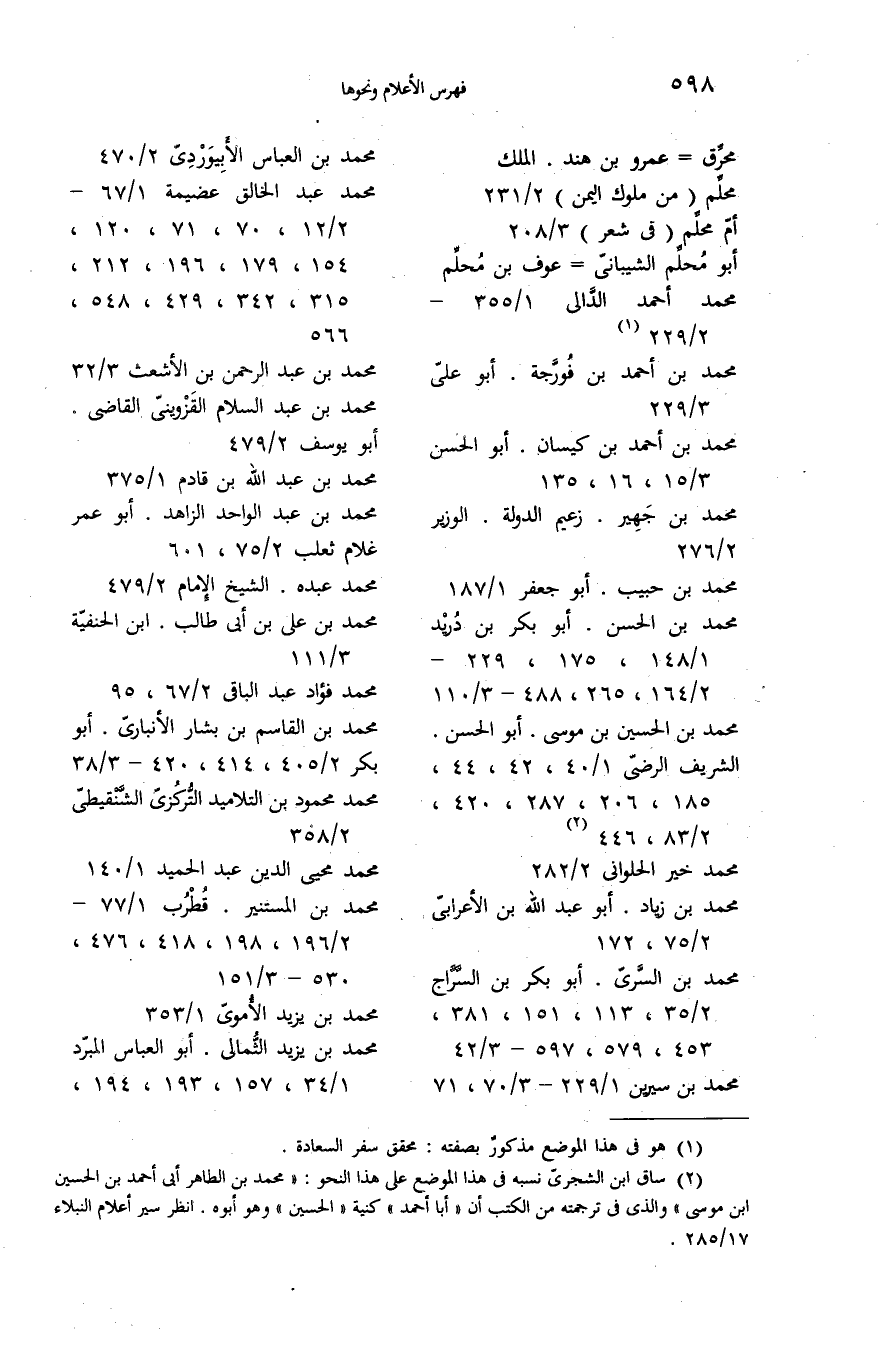 ٥٩٨
فهرس الأعلام ونحوها
محرِّق = عمرو بن هند . الملك
محلِّم ( من ملوك اليمن ) ٢٣١/٢
أمّ محلِّم ( فى شعر ) ٢٠٨/٣
أبو مُحلِّم الشيبانىّ = عوف بن مُحلِّم
محمد أحمد الدَّالى ٣٥٥/١ –
٢٢٩/٢ (١)
محمد بن أحمد بن فُورَّجة . أبو علىّ
٢٢٩/٣
محمد بن أحمد بن كيسان . أبو الحسن
١٥/٣ ، ١٦ ، ١٣٥
محمد بن جَهِير . زعيم الدولة . الوزير
٢٧٦/٢
محمد بن حبيب . أبو جعفر ١٨٧/١
محمد بن الحسن . أبو بكر بن دُرَيْد
١٤٨/١ ، ١٧٥ ، ٢٢٩ –
١٦٤/٢ ، ٢٦٥ ، ٤٨٨ – ١١٠/٣
محمد بن الحسين بن موسى . أبو الحسن .
الشريف الرضىّ ٤٠/١ ، ٤٢ ، ٤٤ ،
١٨٥ ، ٢٠٦ ، ٢٨٧ ، ٤٢٠ ،
٨٣/٢ ، ٤٤٦ (٢)
محمد خير الحلوانى ٢٨٢/٢
محمد بن زياد . أبو عبد الله بن الأعرابىّ
٧٥/٢ ، ١٧٢
محمد بن السَّرىّ . أبو بكر بن السَّرَّاج
٣٥/٢ ، ١١٣ ، ١٥١ ، ٣٨١ ،
٤٥٣ ، ٥٧٩ ، ٥٩٧ – ٤٢/٣
محمد بن سيرين ٢٢٩/١ – ٧٠/٣ ، ٧١
محمد بن العباس الأَبِيوَرْدِىّ ٤٧٠/٢
محمد عبد الخالق عضيمة ٦٧/١ –
١٢/٢ ، ٧٠ ، ٧١ ، ١٢٠ ،
١٥٤ ، ١٧٩ ، ١٩٦ ، ٢١٢ ،
٣١٥ ، ٣٤٢ ، ٤٢٩ ، ٥٤٨ ،
٥٦٦
محمد بن عبد الرحمن بن الأشعث ٣٢/٣
محمد بن عبد السلام القَزْوينىّ القاضى .
أبو يوسف ٤٧٩/٢
محمد بن عبد الله بن قادم ٣٧٥/١
محمد بن عبد الواحد الزاهد . أبو عمر
غلام ثعلب ٧٥/٢ ، ٦٠١
محمد عبده . الشيخ الإمام ٤٧٩/٢
محمد بن على بن أبى طالب . ابن الحنفيّة
١١١/٣
محمد فؤاد عبد الباقى ٦٧/٢ ، ٩٥
محمد بن القاسم بن بشار الأنبارىّ . أبو
بكر ٤٠٥/٢ ، ٤١٤ ، ٤٢٠ – ٣٨/٣
محمد محمود بن التلاميد التُّركُزىّ الشِّنْقيطىّ
٣٥٨/٢
محمد محيى الدين عبد الحميد ١٤٠/١
محمد بن المستنير . قُطْرُب ٧٧/١ –
١٩٦/٢ ، ١٩٨ ، ٤١٨ ، ٤٧٦ ،
٥٣٠ – ١٥١/٣
محمد بن يزيد الأُموىّ ٣٥٣/١
محمد بن يزيد الثُّمالى . أبو العباس المبرّد
٣٤/١ ، ١٥٧ ، ١٩٣ ، ١٩٤ ،
(١) هو فى هذا الموضع مذكورٌ بصفته : محقق سفر السعادة .
(٢) ساق ابن الشجرىّ نسبه فى هذا الموضع على هذا النحو : « محمد بن الطاهر أبى أحمد بن الحسين
ابن موسى » والذى فى ترجمته من الكتب أن « أبا أحمد » كنية « الحسين » وهو أبوه . انظر سير أعلام النبلاء
٢٨٥/١٧ .